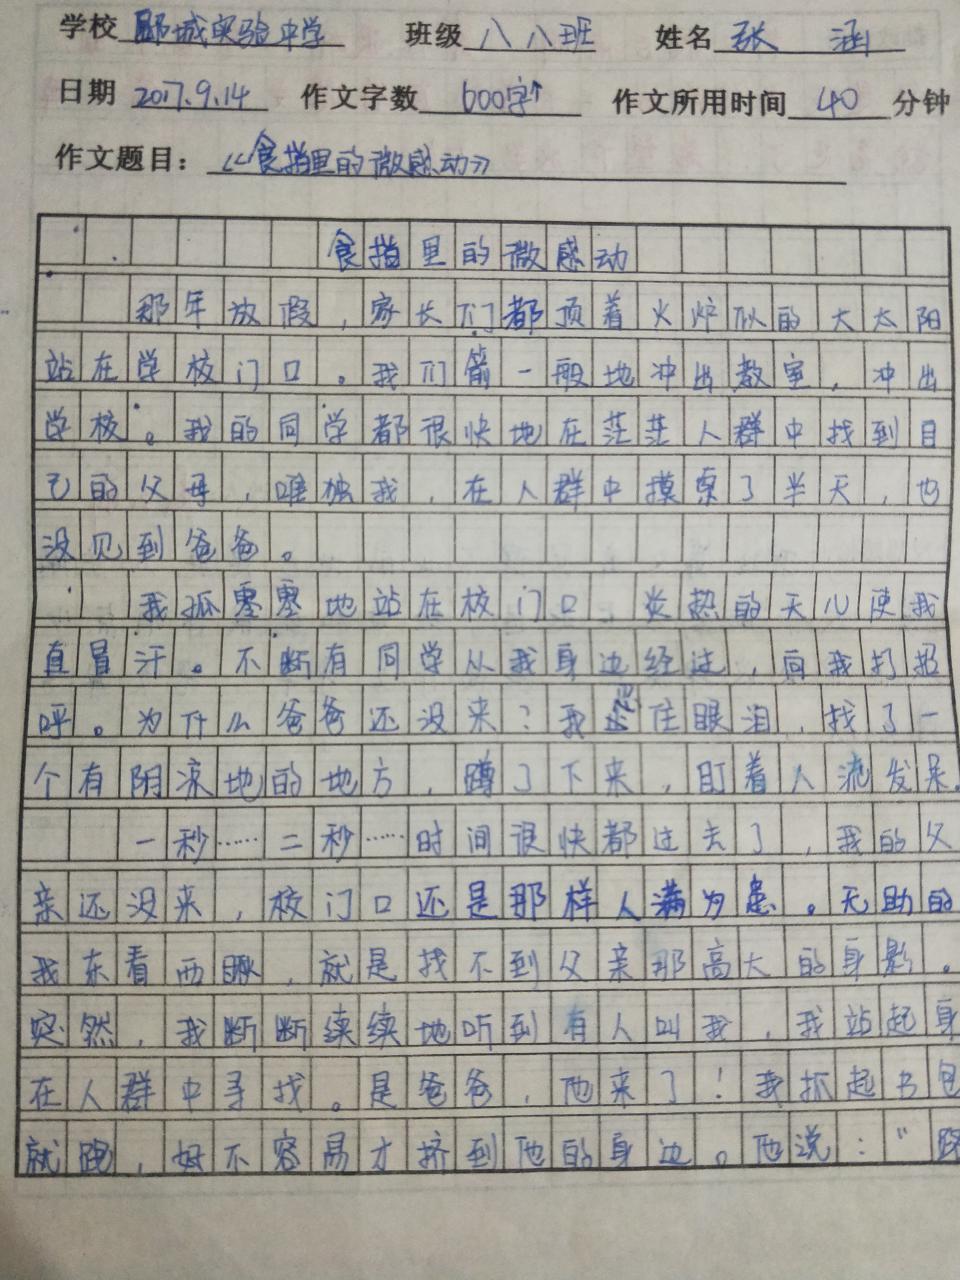 学校 郾城实验中学 班级 八八班 姓名 张涵
日期 2017.9.14 作文字数 600字↑ 作文所用时间 40 分钟
作文题目：《食指里的微感动》
食指里的微感动
那年放假，家长们都顶着火炉似的大太阳
站在学校门口。我们箭一般地冲出教室，冲出
学校。我的同学都很快地在茫茫人群中找到自
己的父母，唯独我，在人群中摸索了半天，也
没见到爸爸。
我孤零零地站在校门口 炎热的天儿使我
直冒汗。不断有同学从我身边经过，向我打招
呼。为什么爸爸还没来？我忍住眼泪，找了一
个有阴凉地的地方，蹲了下来，盯着人流发呆。
一秒……二秒……时间很快都过去了，我的父
亲还没来，校门口还是那样人满为患。无助的
我东看西瞅，就是找不到父亲那高大的身影。
突然，我断断续续地听到有人叫我，我站起身
在人群中寻找。是爸爸，他来了！我抓起书包
就跑，好不容易才挤到他的身边。他说：“路